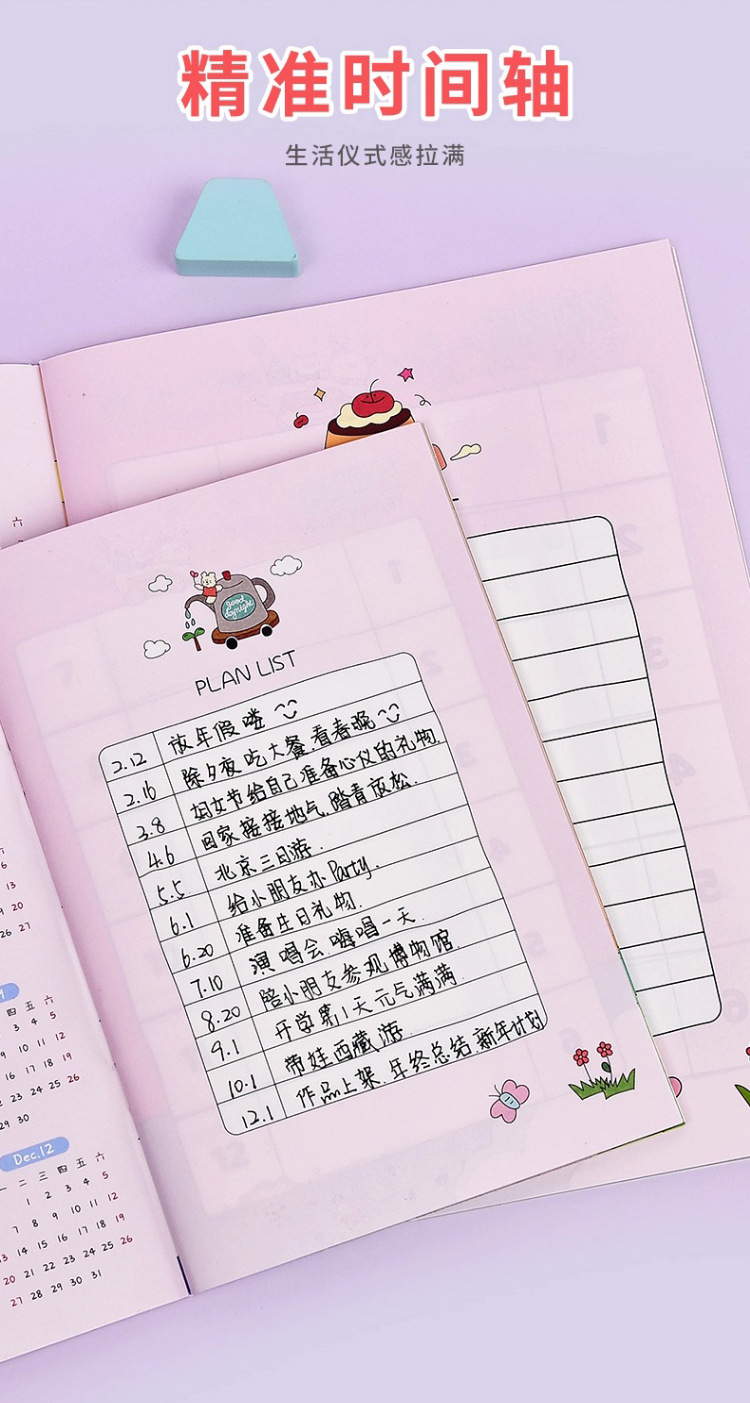 精准时间轴
生活仪式感拉满
good
daynight
PLAN LIST
2.12 放年假喽
2.16 除夕夜吃大餐.看春晚
3.8 妇女节给自己准备心仪的礼物.
4.6 回家接接地气.踏青放松.
5.5 北京三日游.
6.1 给小朋友办Party.
6.20 准备生日礼物.
7.10 演唱会.嗨唱一天.
8.20 陪小朋友参观博物馆.
9.1 开学第1天元气满满.
10.1 带娃西藏游.
12.1 作品上架.年终总结.新年计划
六
六
6
13
19 20
26 27
四 五 六
3 4 5
10 11 12
16 17 18 19
23 24 25 26
29 30
Dec.12
一 二 三 四 五 六
1 2 3 4 5
7 8 9 10 11 12
13 14 15 16 17 18 19
20 21 22 23 24 25 26
27 28 29 30 31
1
2
3
4
5
6
7
1
2
12